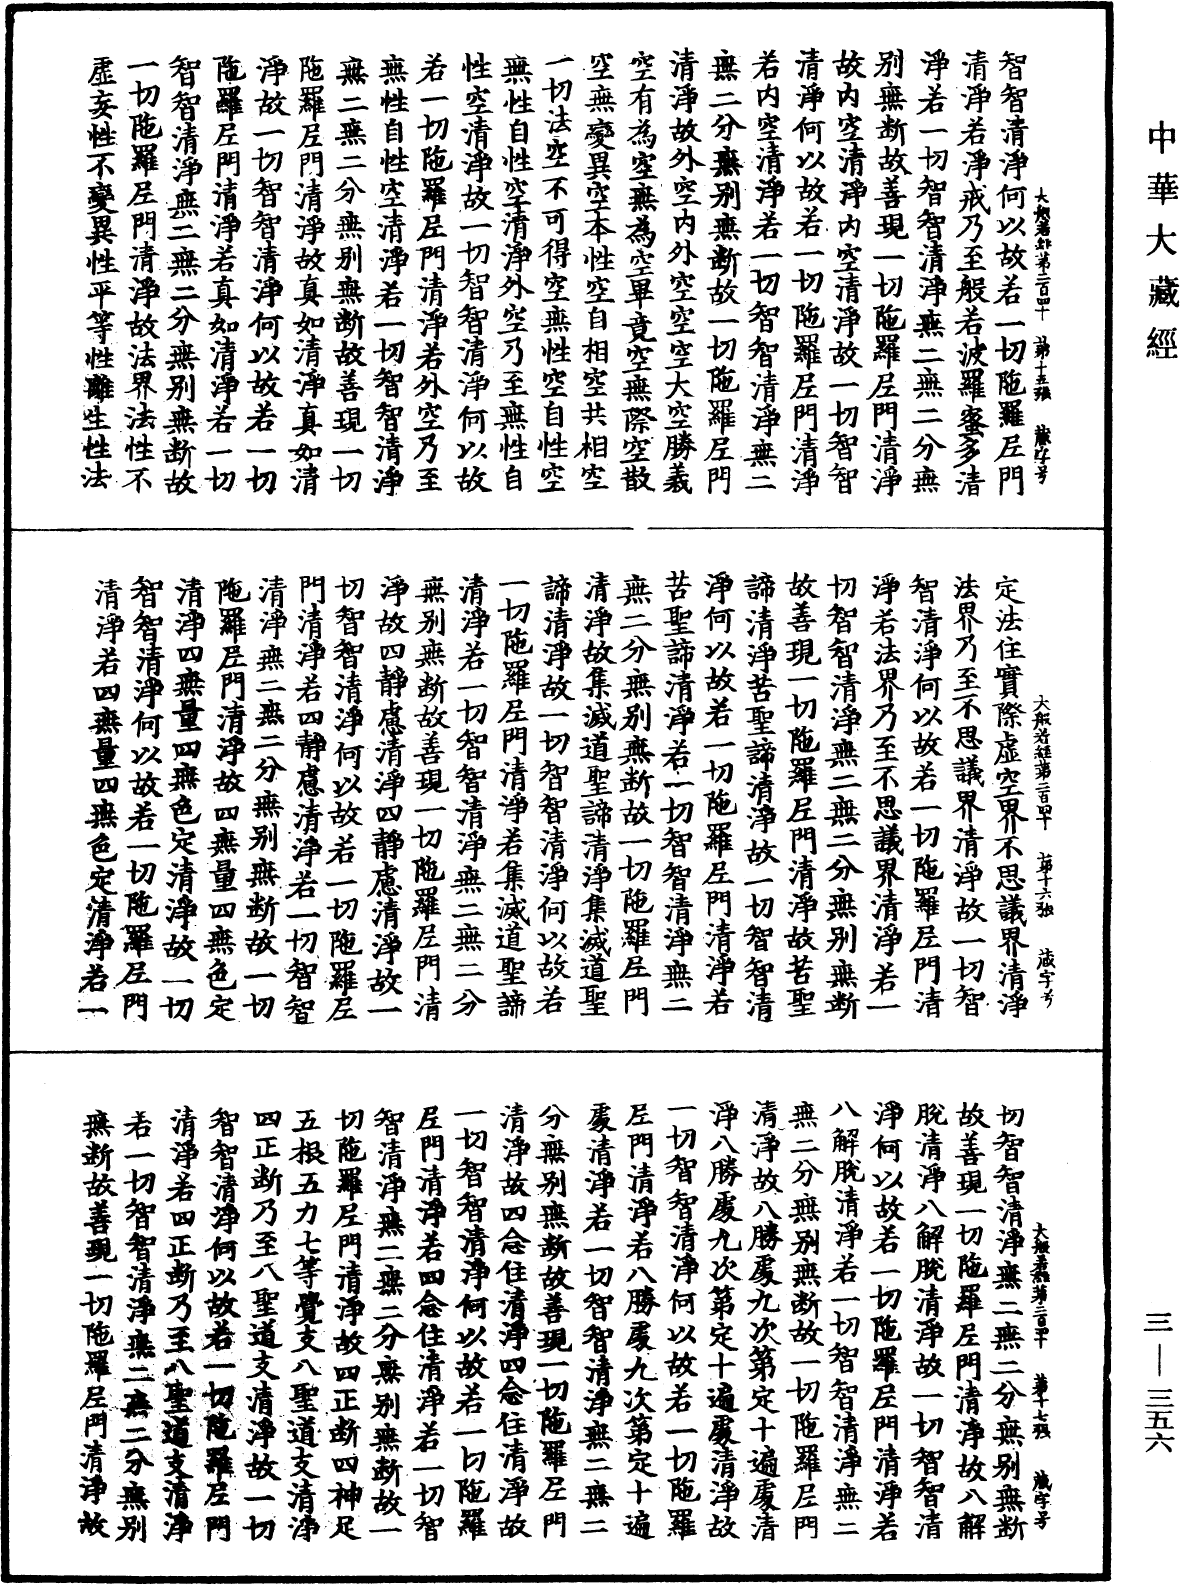 中華大藏經
智智清淨何以故若一切陁羅尼門
清淨若淨戒乃至般若波羅蜜多清
淨若一切智智清淨無二無二分無
别無断故善現一切陁羅尼門清淨
故内空清淨内空清淨故一切智智
清淨何以故若一切陁羅尼門清淨
若内空清淨若一切智智清淨無二
無二分無别無断故一切陁羅尼門
清淨故外空内外空空空大空勝義
空有為空無為空畢竟空無際空散
空無變異空本性空自相空共相空
一切法空不可得空無性空自性空
無性自性空清淨外空乃至無性自
性空清淨故一切智智清淨何以故
若一切陁羅尼門清淨若外空乃至
無性自性空清淨若一切智智清淨
無二無二分無别無断故善現一切
陁羅尼門清淨故真如清淨真如清
淨故一切智智清淨何以故若一切
陁羅尼門清淨若真如清淨若一切
智智清淨無二無二分無别無断故
一切陁羅尼門清淨故法界法性不
虛妄性不變異性平等性離生性法
大般若經第二百四十 第十五張 藏字号
定法住實際虛空界不思議界清淨
法界乃至不思議界清淨故一切智
智清淨何以故若一切陁羅尼門清
淨若法界乃至不思議界清淨若一
切智智清淨無二無二分無别無断
故善現一切陁羅尼門清淨故苦聖
諦清淨苦聖諦清淨故一切智智清
淨何以故若一切陁羅尼門清淨若
苦聖諦清淨若一切智智清淨無二
無二分無别無断故一切陁羅尼門
清淨故集滅道聖諦清淨集滅道聖
諦清淨故一切智智清淨何以故若
一切陁羅尼門清淨若集滅道聖諦
清淨若一切智智清淨無二無二分
無别無断故善現一切陁羅尼門清
淨故四靜慮清淨四靜慮清淨故一
切智智清淨何以故若一切陁羅尼
門清淨若四靜慮清淨若一切智智
清淨無二無二分無别無断故一切
陁羅尼門清淨故四無量四無色定
清淨四無量四無色定清淨故一切
智智清淨何以故若一切陁羅尼門
清淨若四無量四無色定清淨若一
大般若經第二百四十 第十六張 藏字号
切智智清淨無二無二分無别無断
故善現一切陁羅尼門清淨故八解
脫清淨八解脫清淨故一切智智清
淨何以故若一切陁羅尼門清淨若
八解脫清淨若一切智智清淨無二
無二分無别無断故一切陁羅尼門
清淨故八勝處九次第定十遍處清
淨八勝處九次第定十遍處清淨故
一切智智清淨何以故若一切陁羅
尼門清淨若八勝處九次第定十遍
處清淨若一切智智清淨無二無二
分無别無断故善現一切陁羅尼門
清淨故四念住清淨四念住清淨故
一切智智清淨何以故若一切陁羅
尼門清淨若四念住清淨若一切智
智清淨無二無二分無别無断故一
切陁羅尼門清淨故四正断四神足
五根五力七等覺支八聖道支清淨
四正断乃至八聖道支清淨故一切
智智清淨何以故若一切陁羅尼門
清淨若四正断乃至八聖道支清淨
若一切智智清淨無二無二分無别
無断故善現一切陁羅尼門清淨故
大般若經第二百四十 第十七張 藏字号
三—三五六